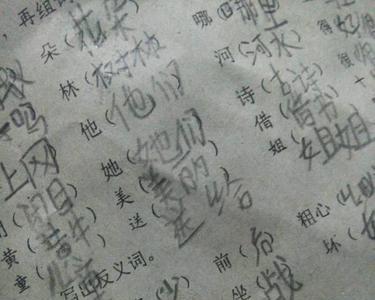 ，再组词
朵（花朵）
哪（哪里
林（树林）
河（河水）
他（他们）
诗（古诗）
她（她们）
借（借书）
美（美丽）
姐（姐姐）
送（送给）
上网
黄（黄牛）
童（儿童）
写出反义词。
少）
前（后）
粗心（
坐（
坏（